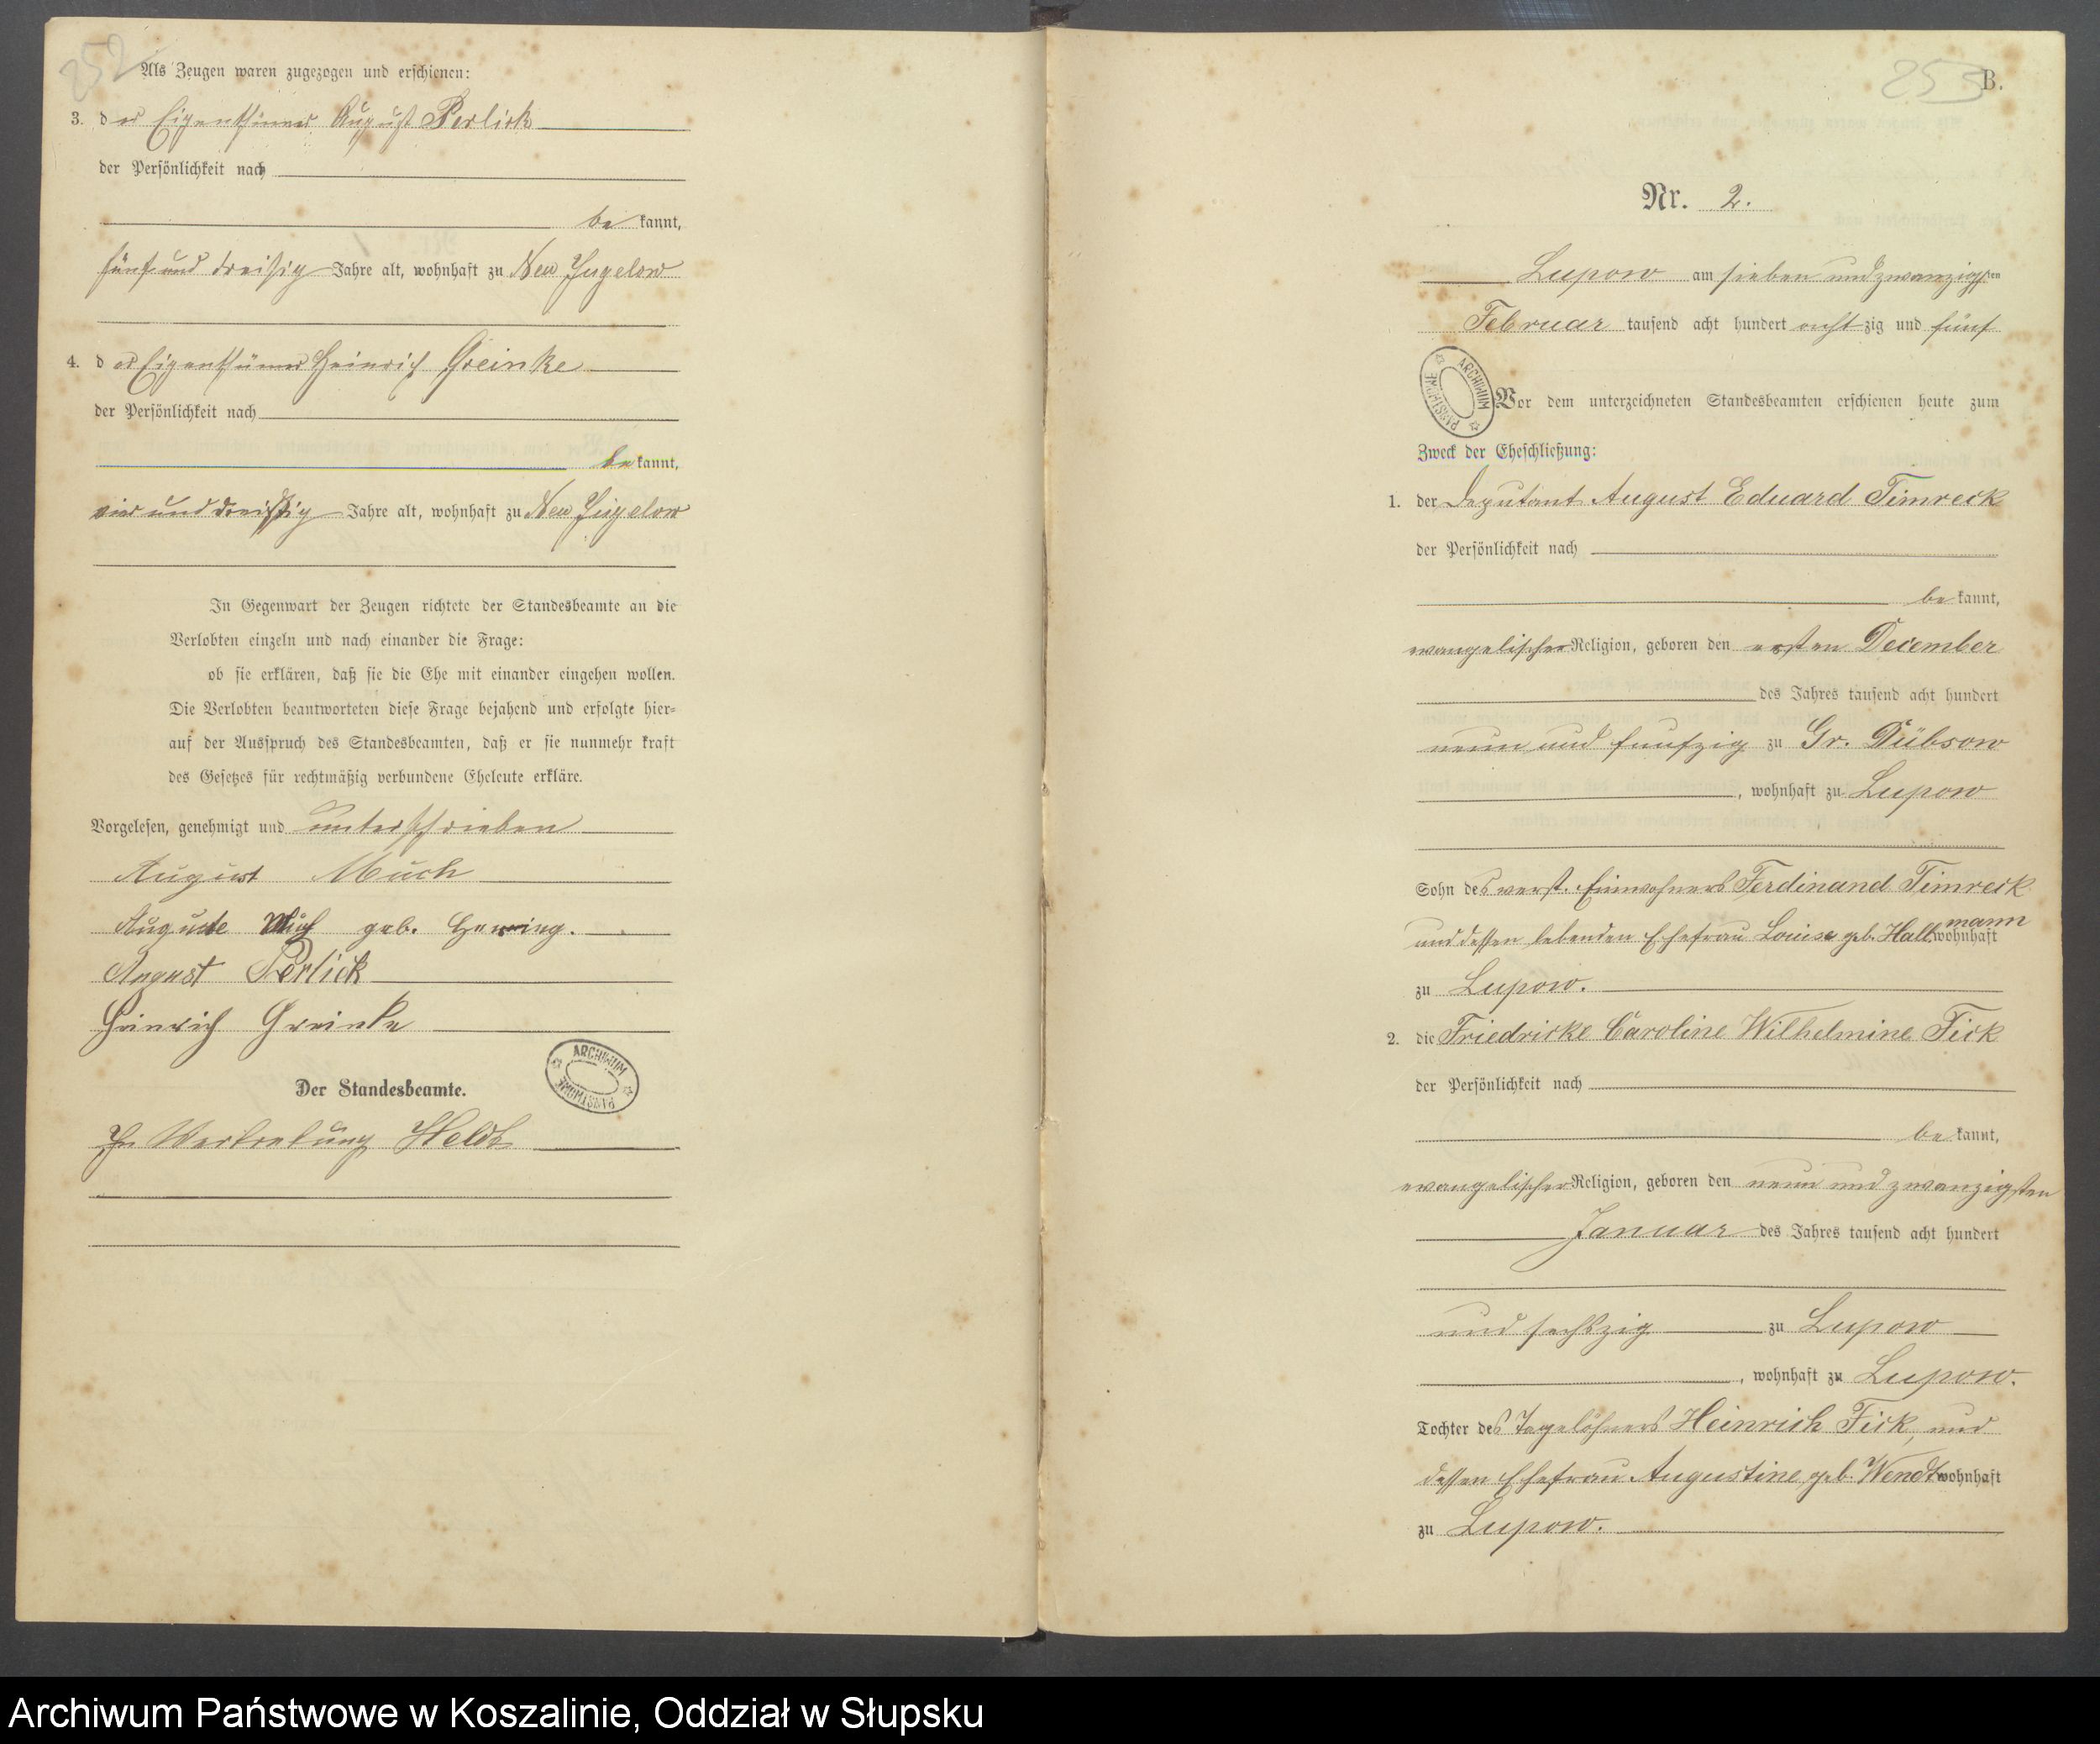 252
Als Zeugen waren zugezogen und erschienen:
3. der Eigenthümer August Perlick
der Persönlichkeit nach
be kannt,
fünf und dreißig Jahre alt, wohnhaft zu Neu Jugelow
4. der Eigenthümer Heinrich Greinke
der Persönlichkeit nach
be kannt,
vier und dreißig Jahre alt, wohnhaft zu Neu Jugelow
In Gegenwart der Zeugen richtete der Standesbeamte an die
Verlobten einzeln und nach einander die Frage:
ob sie erklären, daß sie die Ehe mit einander eingehen wollen.
Die Verlobten beantworteten diese Frage bejahend und erfolgte hier=
auf der Ausspruch des Standesbeamten, daß er sie nunmehr kraft
des Gesetzes für rechtmäßig verbundene Eheleute erkläre.
Vorgelesen, genehmigt und unterschrieben
August Much
Auguste Much geb.
August Perlick
Heinrich Greinke
Der Standesbeamte.
ARCHIWUM PAŃSTWOWE
In Vertretung Heldt
253
B.
Nr. 2.
Lupow am sieben und zwanzigsten
Februar tausend acht hundert achtzig und fünf
ARCHIWUM PAŃSTWOWE
Vor dem unterzeichneten Standesbeamten erschienen heute zum
Zweck der Eheschließung:
1. der Deputant August Eduard Timreck
der Persönlichkeit nach
be kannt,
evangelischer Religion, geboren den ersten December
des Jahres tausend acht hundert
neun und funfzig zu Gr. Dübsow
, wohnhaft zu Lupow
Sohn des verst. Einwohners Ferdinand Timreck
und dessen lebenden Ehefrau Louise geb. Hallmann wohnhaft
zu Lupow.
2. die Friedricke Caroline Wilhelmine Fick
der Persönlichkeit nach
be kannt,
evangelischer Religion, geboren den neun und zwanzigsten
Januar des Jahres tausend acht hundert
und sechszig zu Lupow
, wohnhaft zu Lupow.
Tochter des Tagelöhners Heinrich Fick, und
dessen Ehefrau Augustine geb. Wendt wohnhaft
zu Lupow.
Archiwum Państwowe w Koszalinie, Oddział w Słupsku